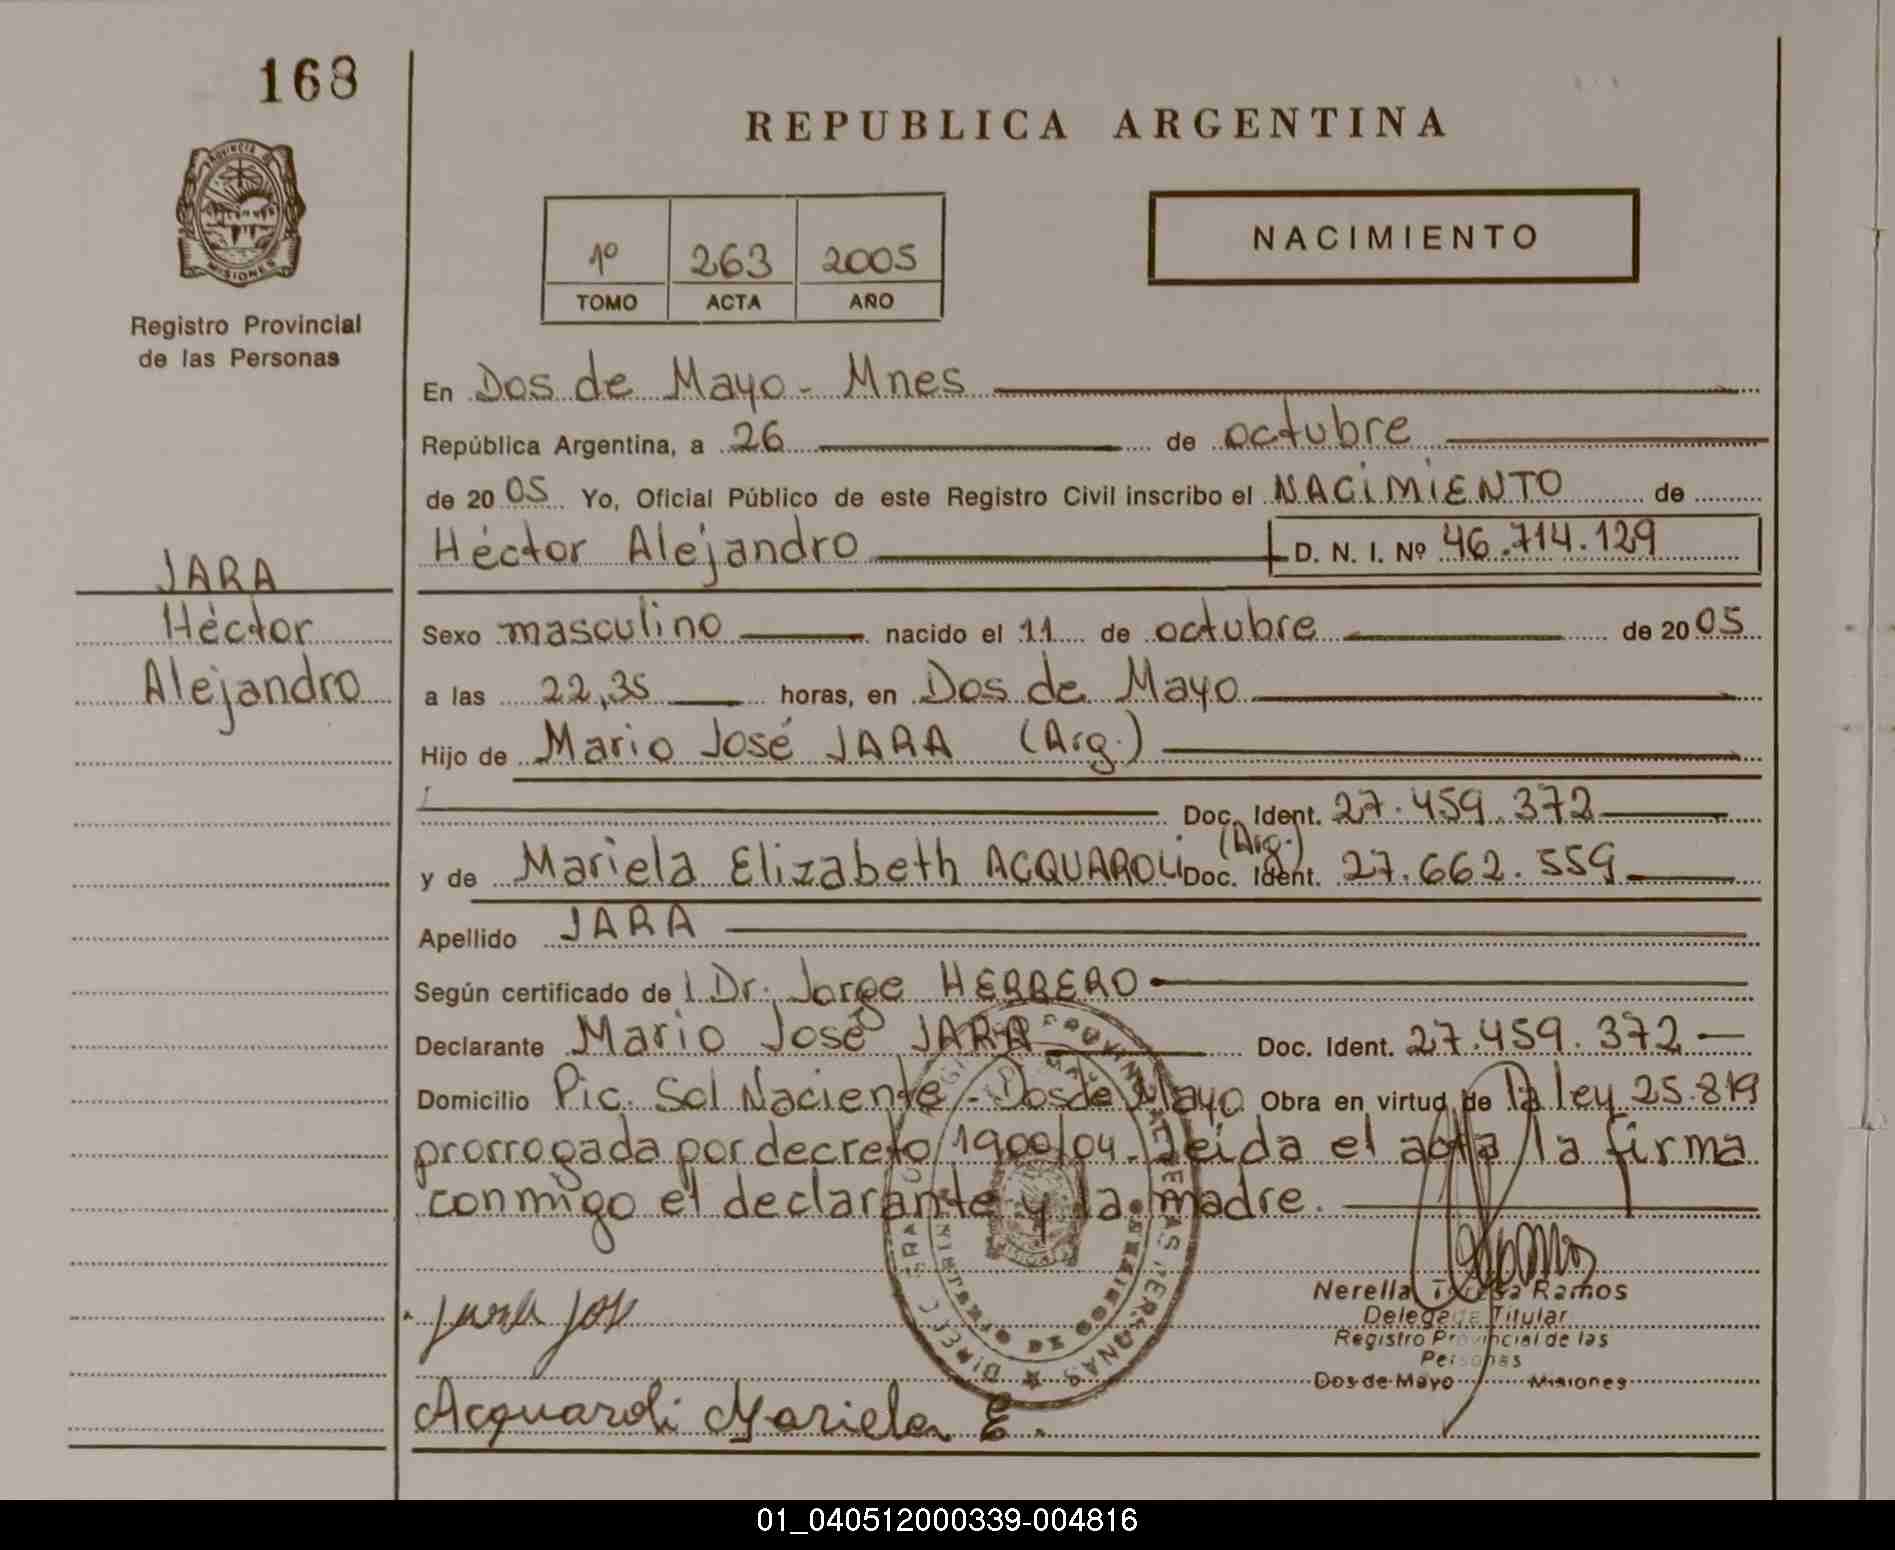 168
REPUBLICA ARGENTINA
PROVINCIA DE
MISIONES
Registro Provincial
de las Personas
1º 263 2005
TOMO ACTA AÑO
NACIMIENTO
En Dos de Mayo - Mnes
República Argentina, a 26 de octubre
de 2005 Yo, Oficial Público de este Registro Civil inscribo el NACIMIENTO de
Héctor Alejandro D. N. I. Nº 46.714.129
JARA
Héctor
Alejandro
Sexo masculino nacido el 11 de octubre de 2005
a las 22,35 horas, en Dos de Mayo
Hijo de Mario José JARA (Arg.)
Doc. Ident. 27.459.372
y de Mariela Elizabeth ACQUAROLI (Arg.) Doc. Ident. 27.662.559
Apellido JARA
Según certificado de l Dr. Jorge HERRERO
Declarante Mario José JARA Doc. Ident. 27.459.372
Domicilio Pic. Sol Naciente - Dos de Mayo Obra en virtud de la ley 25.819
prorrogada por decreto 1900/04. Leída el acta la firma
conmigo el declarante y la madre.
Jara José
Nerella Teresa Ramos
Delegada Titular
Registro Provincial de las
Personas
Dos de Mayo Misiones
Acquaroli Mariela E.
01_040512000339-004816